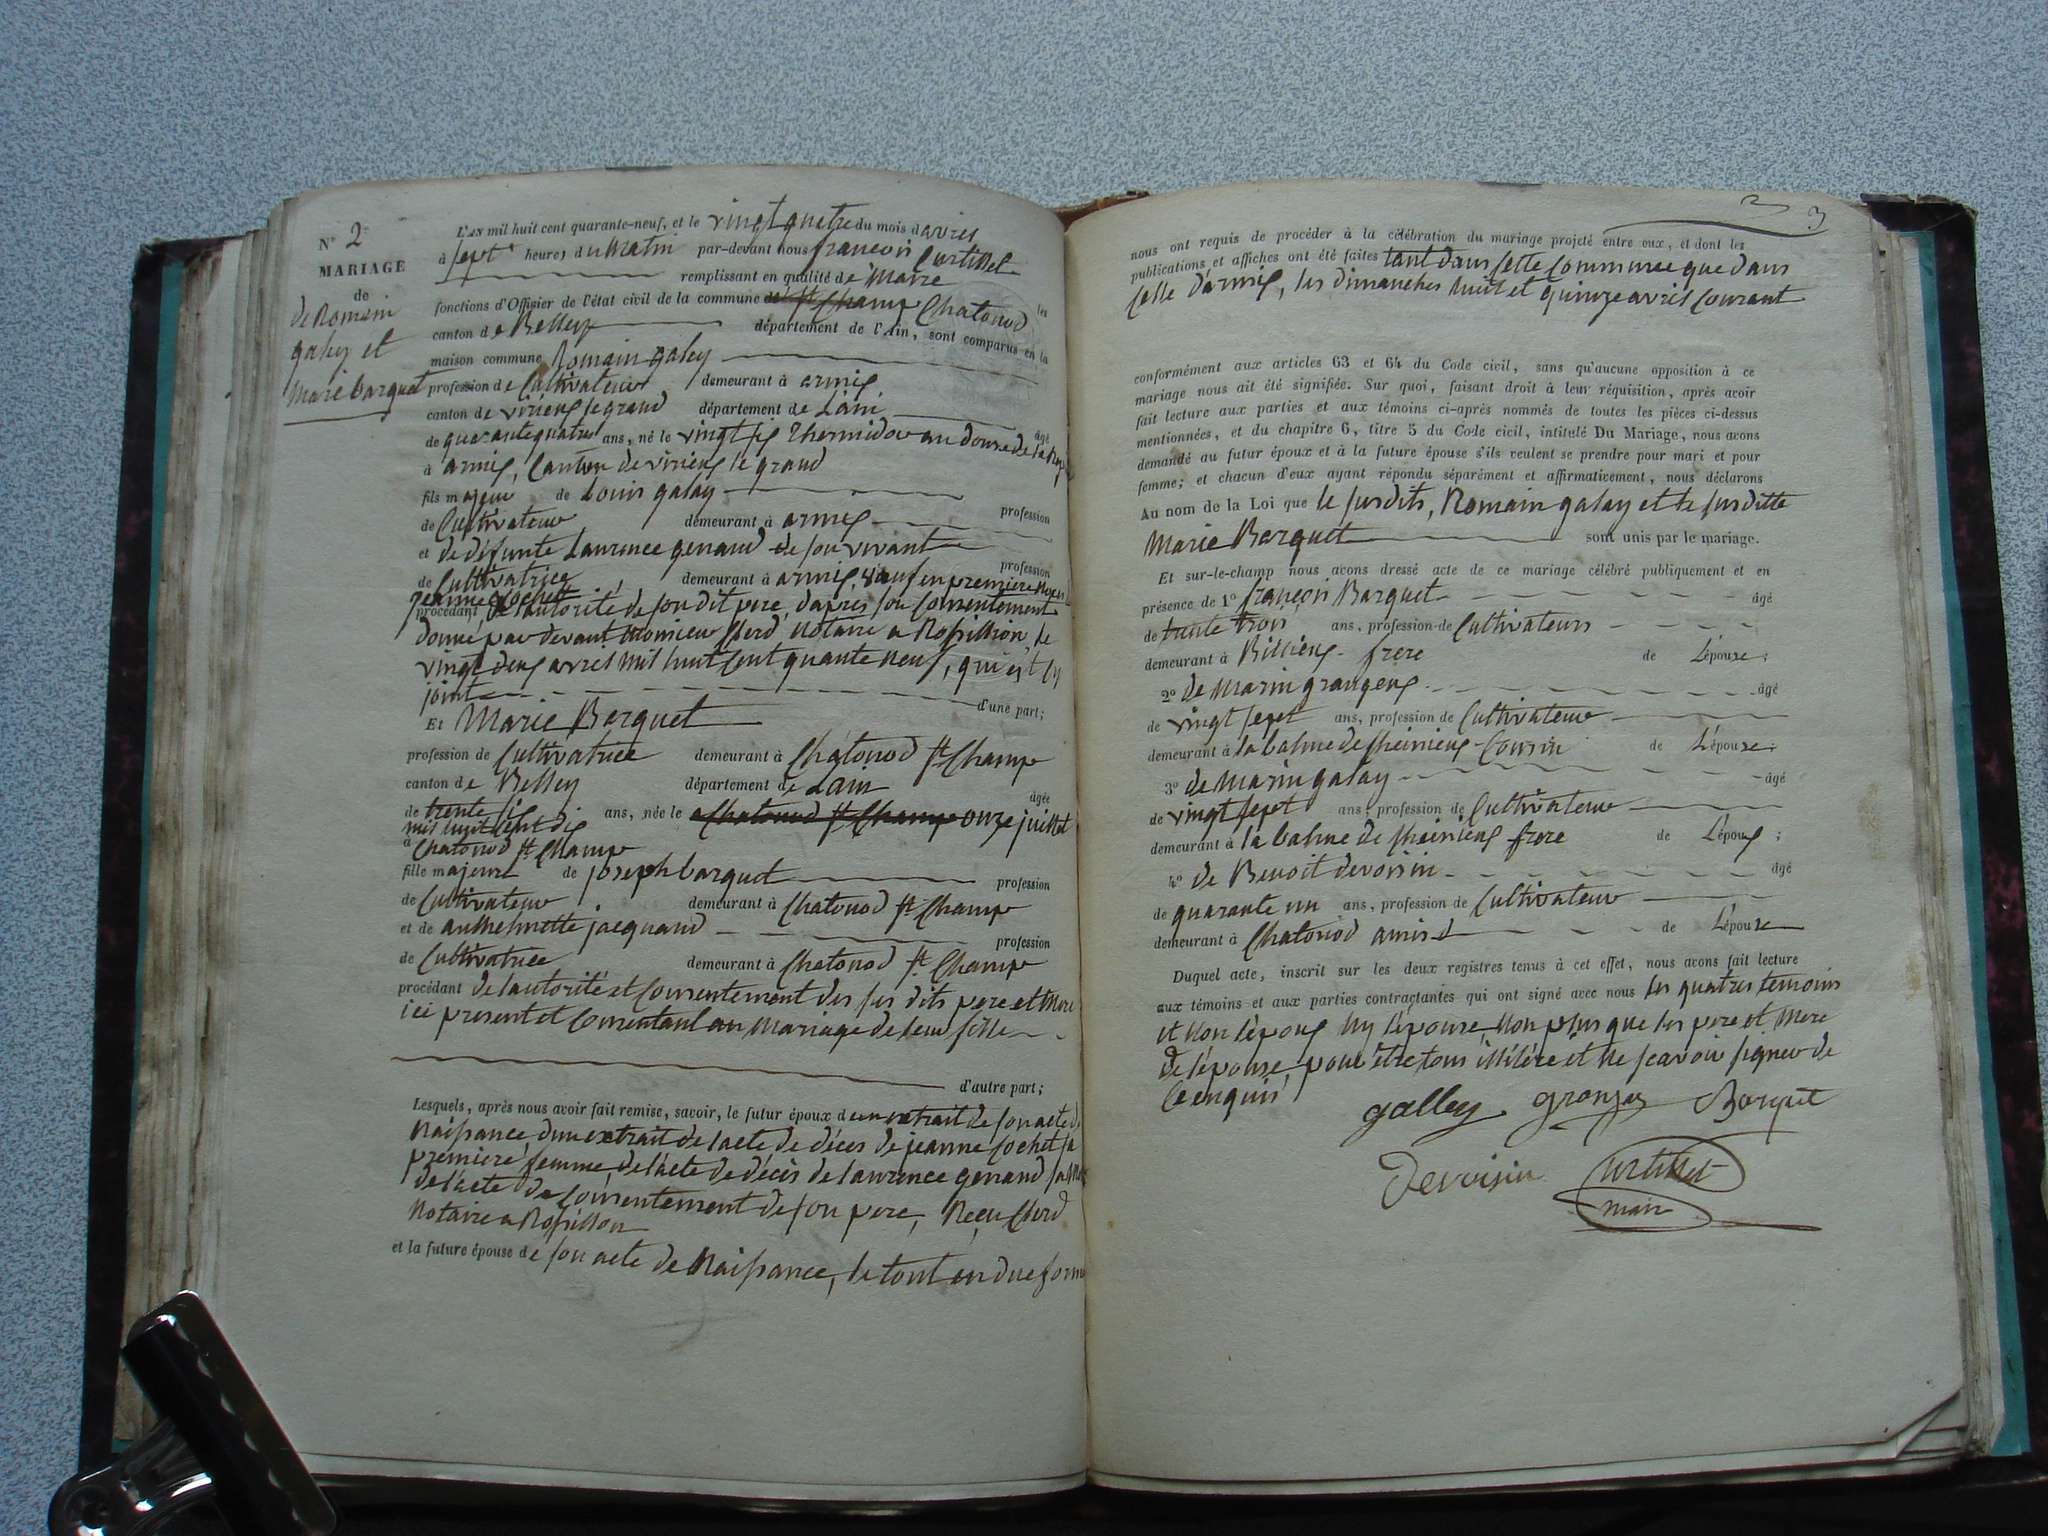 N° 2
MARIAGE
de
de Romain
galay et
Marie barquet
L'an mil huit cent quarante-neuf, et le vingt quatre du mois d avril
à sept heures du Matin par-devant nous françois Curtillet
remplissant en qualité de Maire les
fonctions d'Officier de l'état civil de la commune de St Champ Chatonod
canton de Belley département de l'Ain, sont comparus en la
maison commune Romain galay
profession de Cultivateur demeurant à armix
canton de virieux le grand département de Lain
âgé
de quarante quatre ans, né le vingt six Thermidor an douse de la Rep
à armix, Canton de virieux le grand
fils majeur de Louis galay
profession
de Cultivateur demeurant à armix
et de défunte Laurence genand de son vivant
profession
de Cultivatrice demeurant à armix, Vauf en premiere Noces
Jeanne Cochet
procédant de l'autorité de son dit pere, daprès son Consentement
donné par devant Monsieur Clerd Notaire a Rossillion, le
vingt deux avril mil huit Cent quante neuf, qui est cy
joint
d'une part;
Et Marie Barquet
profession de Cultivatrice demeurant à Chatonod St Champ
canton de Belley département de Lain
âgée
de trente six ans, née le a Chatonod St Champ onze juillet
mil huit Cent dix
à Chatonod St Champ
fille majeure de joseph barquet
profession
de Cultivateur demeurant à Chatonod St Champ
et de anthelmette jacquand
profession
de Cultivatrice demeurant à Chatonod St Champ
procédant de l'autorité et Consentement des sus dits pere et Mere
ici present et Consentant au Mariage de leur fille
d'autre part;
Lesquels, après nous avoir fait remise, savoir, le futur époux d un extrait de son acte de
Naissance, d'un extrait de l'acte de déces de jeanne Cochet sa
premiere femme, de l'acte de décès de laurence genand sa Mere
de l'acte de Consentement de son pere, Reçu Clerd
Notaire a Rossillon
et la future épouse de son acte de Naissance, le tout en due forme
3
nous ont requis de procéder à la célébration du mariage projeté entre eux, et dont les
publications et affiches ont été faites tant dans Cette Commune que dans
Celle d'armix, les dimanches huit et quinze avril Courant
conformément aux articles 63 et 64 du Code civil, sans qu'aucune opposition à ce
mariage nous ait été signifiée. Sur quoi, faisant droit à leur réquisition, après avoir
fait lecture aux parties et aux témoins ci-après nommés de toutes les pièces ci-dessus
mentionnées, et du chapitre 6, titre 5 du Code civil, intitulé Du Mariage, nous avons
demandé au futur époux et à la future épouse s'ils veulent se prendre pour mari et pour
femme; et chacun d'eux ayant répondu séparément et affirmativement, nous déclarons
Au nom de la Loi que le susdits, Romain galay et le susditte
Marie Barquet sont unis par le mariage.
Et sur-le-champ nous avons dressé acte de ce mariage célébré publiquement et en
présence de 1° françois Barquet âgé
de trente trois ans, profession de Cultivateurs
demeurant à Billieux frere de Lépouse;
2° de Marin grangeux âgé
de vingt sept ans, profession de Cultivateur
demeurant à la balme de Cheinieux Cousin de Lépouse;
3° de Marin galay âgé
de vingt sept ans, profession de Cultivateur
demeurant à la balme de Cheinieux frere de Lépoux;
4° de Benoit devoisin âgé
de quarante un ans, profession de Cultivateur
demeurant à Chatonod amis d de Lépouse
Duquel acte, inscrit sur les deux registres tenus à cet effet, nous avons fait lecture
aux témoins et aux parties contractantes qui ont signé avec nous les quatres temoins
et Non lépoux Ny lépouse, Non plus que les pere et Mere
de lépouse, pour être tous illitére et Ne scavoir signer de
Ce enquis
galley granjes Borquet
Devoisin Curtillet
maire